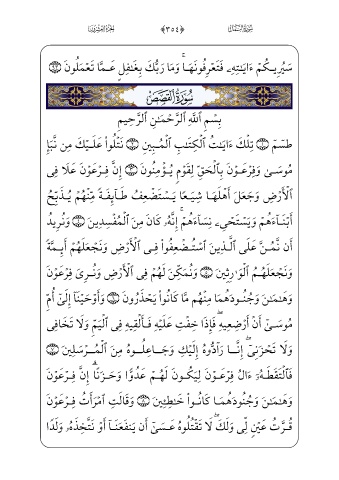 سُورَةُ النَّمْلِ ﴿٣٥٤﴾ الجُزْءُ العِشْرُونَ
سَيُرِيكُمْ ءَايَـٰتِهِۦ فَتَعْرِفُونَهَا ۚ وَمَا رَبُّكَ بِغَـٰفِلٍ عَمَّا تَعْمَلُونَ
سُورَةُ الْقَصَصِ
بِسْمِ ٱللَّهِ ٱلرَّحْمَـٰنِ ٱلرَّحِيمِ
طسٓمٓ تِلْكَ ءَايَـٰتُ ٱلْكِتَـٰبِ ٱلْمُبِينِ نَتْلُوا۟ عَلَيْكَ مِن نَّبَإِ
مُوسَىٰ وَفِرْعَوْنَ بِٱلْحَقِّ لِقَوْمٍ يُؤْمِنُونَ إِنَّ فِرْعَوْنَ عَلَا فِى
ٱلْأَرْضِ وَجَعَلَ أَهْلَهَا شِيَعًا يَسْتَضْعِفُ طَآئِفَةً مِّنْهُمْ يُذَبِّحُ
أَبْنَآءَهُمْ وَيَسْتَحْىِۦ نِسَآءَهُمْ ۚ إِنَّهُۥ كَانَ مِنَ ٱلْمُفْسِدِينَ وَنُرِيدُ
أَن نَّمُنَّ عَلَى ٱلَّذِينَ ٱسْتُضْعِفُوا۟ فِى ٱلْأَرْضِ وَنَجْعَلَهُمْ أَئِمَّةً
وَنَجْعَلَهُمُ ٱلْوَٰرِثِينَ وَنُمَكِّنَ لَهُمْ فِى ٱلْأَرْضِ وَنُرِىَ فِرْعَوْنَ
وَهَـٰمَـٰنَ وَجُنُودَهُمَا مِنْهُم مَّا كَانُوا۟ يَحْذَرُونَ وَأَوْحَيْنَآ إِلَىٰٓ أُمِّ
مُوسَىٰٓ أَنْ أَرْضِعِيهِ ۖ فَإِذَا خِفْتِ عَلَيْهِ فَأَلْقِيهِ فِى ٱلْيَمِّ وَلَا تَخَافِى
وَلَا تَحْزَنِىٓ ۖ إِنَّا رَآدُّوهُ إِلَيْكِ وَجَاعِلُوهُ مِنَ ٱلْمُرْسَلِينَ
فَٱلْتَقَطَهُۥٓ ءَالُ فِرْعَوْنَ لِيَكُونَ لَهُمْ عَدُوًّا وَحَزَنًا ۗ إِنَّ فِرْعَوْنَ
وَهَـٰمَـٰنَ وَجُنُودَهُمَا كَانُوا۟ خَـٰطِـِٔينَ وَقَالَتِ ٱمْرَأَتُ فِرْعَوْنَ
قُرَّتُ عَيْنٍ لِّى وَلَكَ ۖ لَا تَقْتُلُوهُ عَسَىٰٓ أَن يَنفَعَنَآ أَوْ نَتَّخِذَهُۥ وَلَدًا